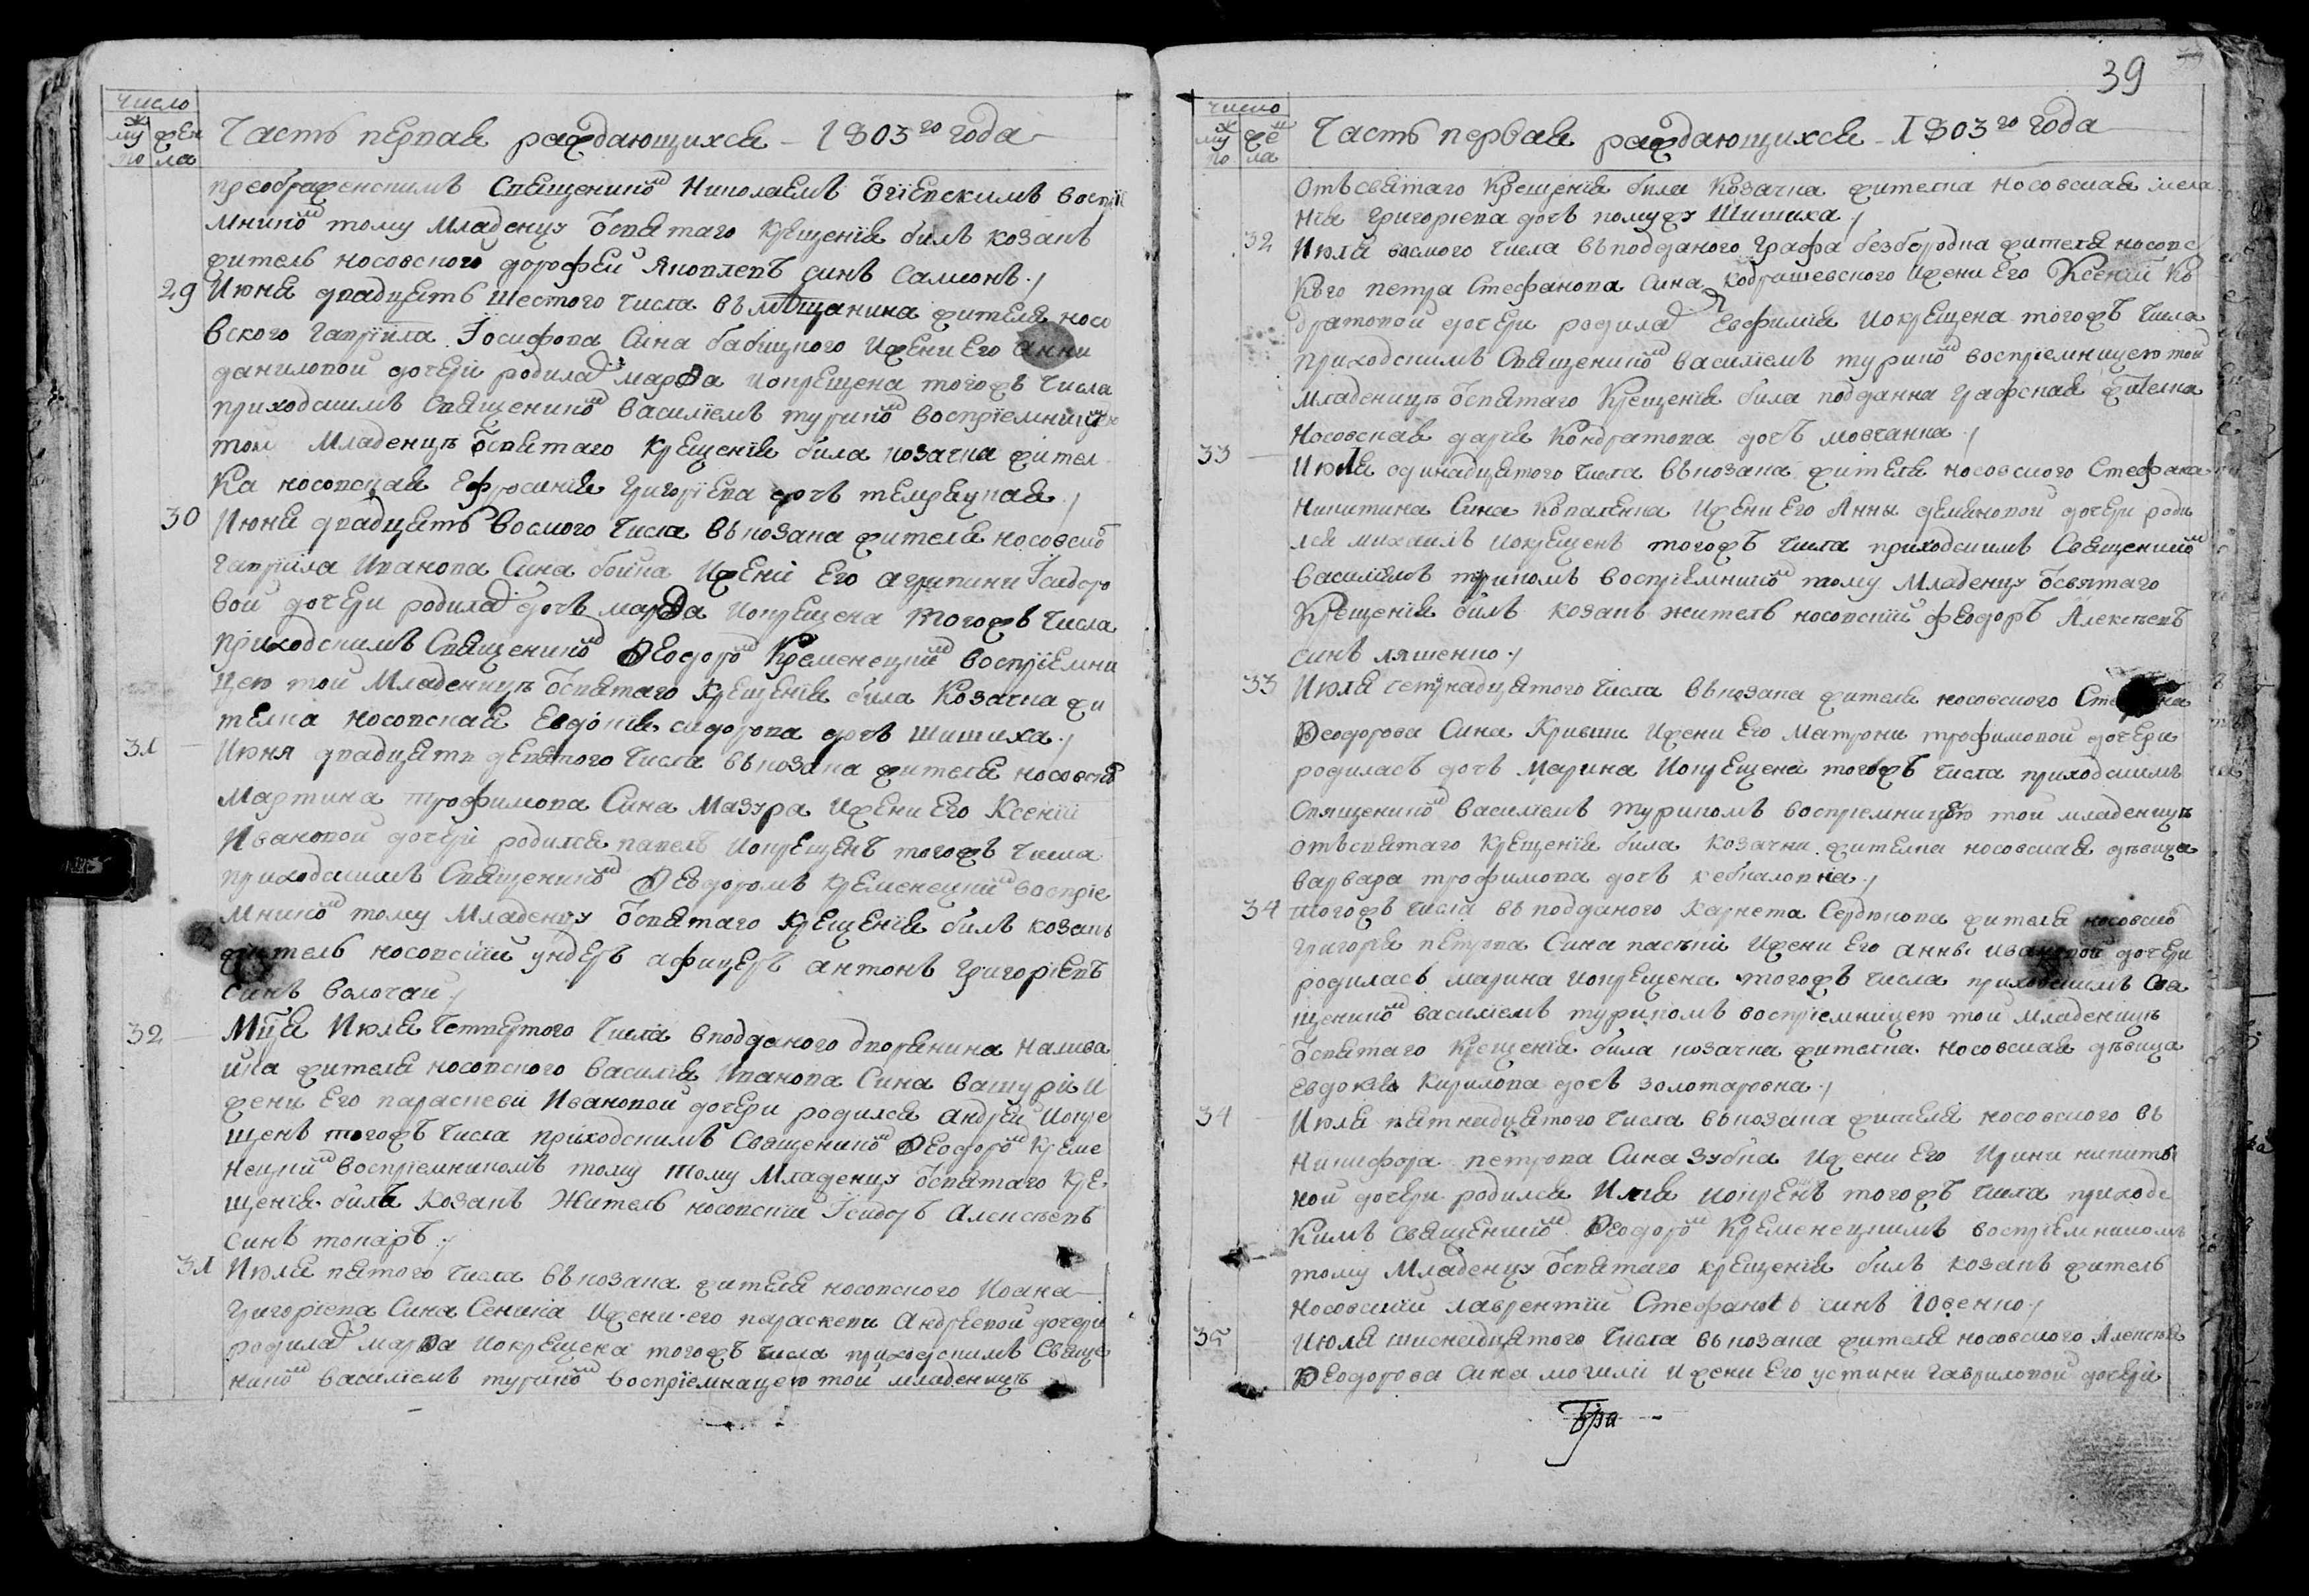 число
муж
ско
жен
ска
Часть первая раждающихся – 1803го года
преображенскимъ Священником Николаемъ Огіевскимъ воспріе
мником тому Младенцу ѿ святаго Крещенія билъ козакъ
житель носовского дорофей Яковлевъ синъ Самионъ ./
29 Июня двадцять шестого числа въ мѣщанина жителя носо
вского гавріила Іосифова Сина бабицкого Ижени Его Анни
даниловой дочери родилась марѳа и крещена тогожъ числа
приходскимъ Священником василіемъ турином воспріемницею
той Младенцѣ ѿ святаго Крещенія била козачка жител
ка носовская Ефросинія григоріева дочь ./
30 Июня двадцять восмого числа въ козака жителя носовско
гавріила Иванова Сина бойка Ижени Его агрипини Ісидоро
вой дочери родилась дочь марѳа и крещена тогожъ числа
приходскимъ Священником Ѳеодором Кременецким воспріемни
цею той Младеницѣ ѿ святаго Крещенія била Козачка жи
телка носовская Евдокія сидорова дочь шишиха ./
31 Июня двадцять девятого числа въ козака жителя носовско
Мартина трофимова Сина Мазура Ижени Его Ксеніи
Ивановой дочери родился павелъ и крещенъ тогожъ числа
приходскимъ Священником Ѳеодоромъ Кременецким воспріе
мником тому Младенцу ѿ святаго Крещенія билъ козакъ
житель носовский ундеръ афицеръ антонъ григоріевъ
синъ волочай ./
32 Мца Июля Четвертого Числа в подданого дворянина налива
йка жителя носовского василія Иванова Сина И
жени Его параскевіи Ивановой дочери родился андрей и кре
щенъ тогожъ числа приходскимъ Священником Ѳеодором Креме
нецким воспріемникомъ тому тому Младенцу ѿ святаго Кре
щенія билъ Козакъ Житель носовский Ісидоръ Алексѣевъ
синъ токаръ ./
31 Июля пятого числа въ козака жителя носовского Иоана
григоріева Сина Сенька Ижени его параскеви Андрѣевой дочери
родилась марѳа и крещена тогожъ числа приходскимъ Свяще
нником василіемъ турином воспріемнацею той младеницѣ
39
число
муж
ско
жен
ска
Часть первая раждающихся – 1803го года
отъ святаго Крещенія била Козачка жителка носовская мела
нія григоріева дочь помужу Шишиха ./
32 Июля восмого числа въ подданого графа безбородка жителя носовс
кого петра Стефанова Сина Кодрашевского Ижени Его Ксеніи Ко
дратовой дочери родилась Евфимія и крещена тогожъ числа
приходскимъ Священником василіемъ турином воспріемницею той
младеницѣ ѿ святаго Крещенія била подданка графская жителка
Носовская дарія Кондратова дочь мовчанка ./
33 Июля одинадцятого числа въ козака жителя носовского Стефана
Никитина Сина Коваленка Ижени Его Анны демяновой дочери роди
лся михаилъ и крещенъ тогожъ числа приходскимъ Священником
василіемъ туриномъ воспріемником тому Младенцу ѿ святаго
Крещенія билъ козакъ житель носовский феодоръ Алексѣевъ
синъ ляшенко ./
33 Июля четирнадцятого числа въ козака жителя носовского
Ѳеодорова Сина Кривши Ижени Его Матрони трофимовой дочери
родилась дочь Марина и крещена тогожъ числа приходскимъ
Священником василіемъ туриномъ воспріемницею той младеницѣ
отъ святаго Крещенія била козачка жителка носовская дѣвица
варвара трофимова дочь ./
34 тогожъ числа въ подданого Карнета Сердюкова жителя носовско
григорія петрова Сина пасѣки Ижени Его анны ивановой дочери
родилась марина и крещена тогожъ числа приходскимъ Свя
щенником василіемъ туриномъ воспріемницею той Младеницѣ
ѿ святаго Крещенія била козачка жителка носовская дѣвица
евдокія Кирилова дочь золотаровна ./
34 Июля пятнадцятого числа въ козака жителя носовского въ
Никифора петрова Сина зубка Ижени Его Ирини никити
ной дочери родился Илія и крещенъ тогожъ числа приходс
кимъ Священником Ѳеодором Кременецкимъ воспріемникомъ
тому Младенцу ѿ святаго крещенія билъ козакъ житель
носовский лаврентий Стефановъ синъ Ювенко ./
35 Июля шиснадцятого числа въ козака жителя носовского Алексѣя
Ѳеодорова Сина могили Ижени Его устини гавриловой дочери